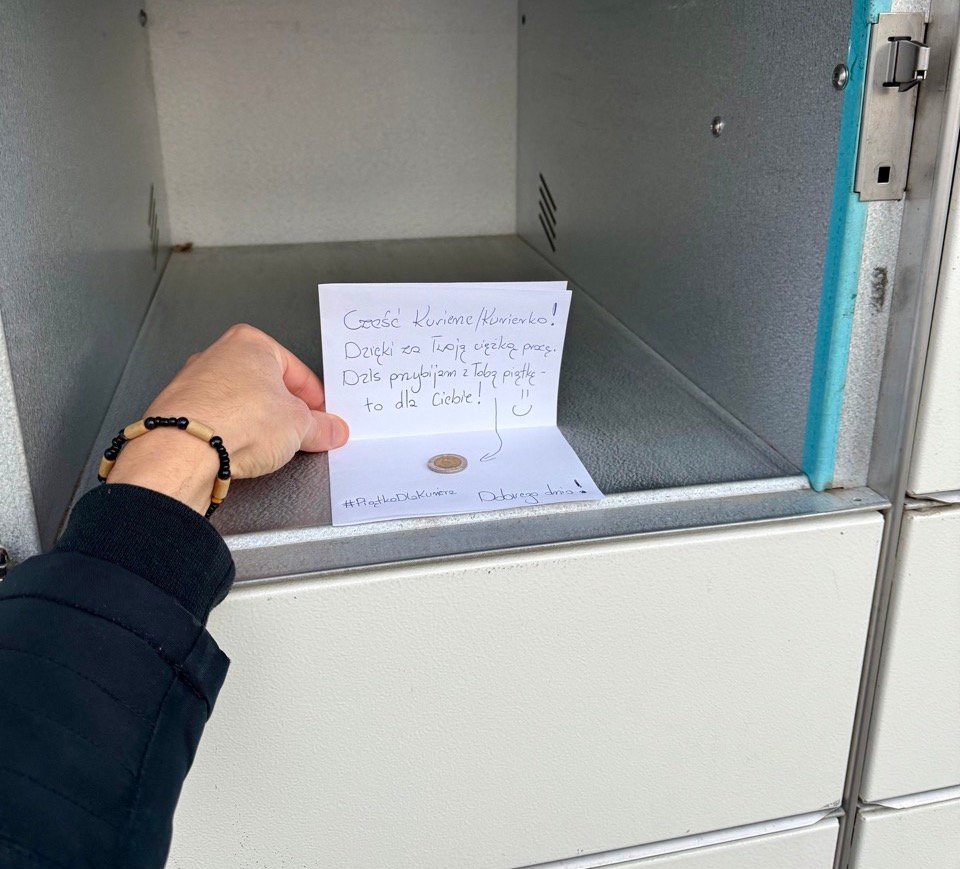 Cześć Kurierze/Kurierko!
Dzięki za Twoją ciężką pracę.
Dziś przybijam z Tobą piątkę -
to dla Ciebie!
#PiątkaDlaKuriera Dobrego dnia!